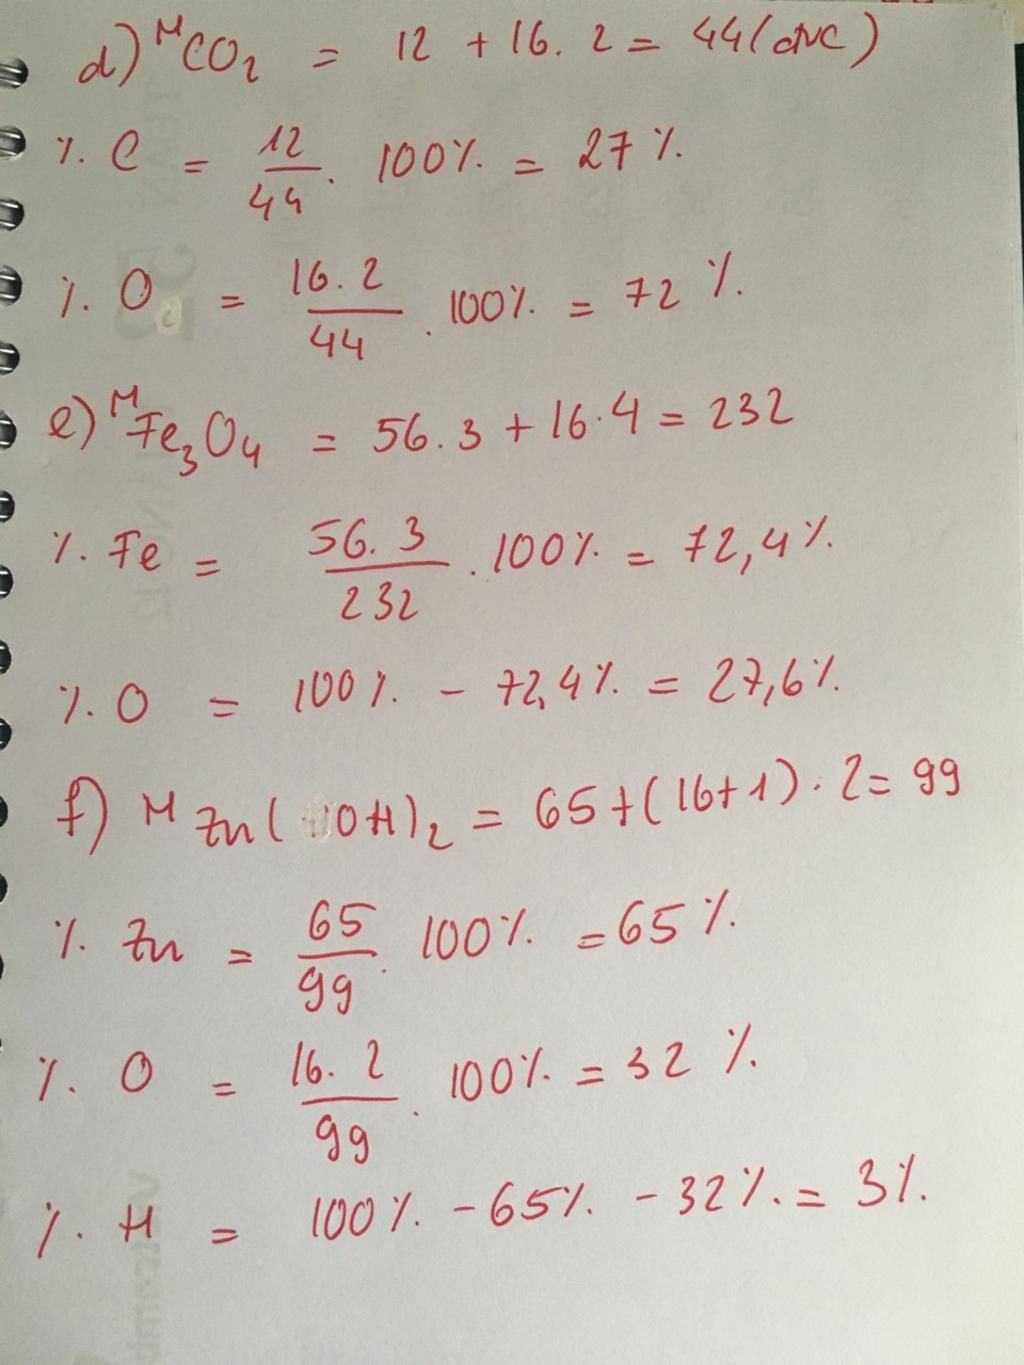 d) ᴹCO₂ = 12 + 16 . 2 = 44 (đvC)
% C = 12/44 . 100% = 27%
% O = 16.2/44 . 100% = 72%
e) ᴹFe₃O₄ = 56.3 + 16.4 = 232
% Fe = 56.3/232 . 100% = 72,4%
% O = 100% - 72,4% = 27,6%
f) ᴹ Zn(OH)₂ = 65 + (16+1) . 2 = 99
% Zn = 65/99 . 100% = 65%
% O = 16.2/99 . 100% = 32%
% H = 100% - 65% - 32% = 3%